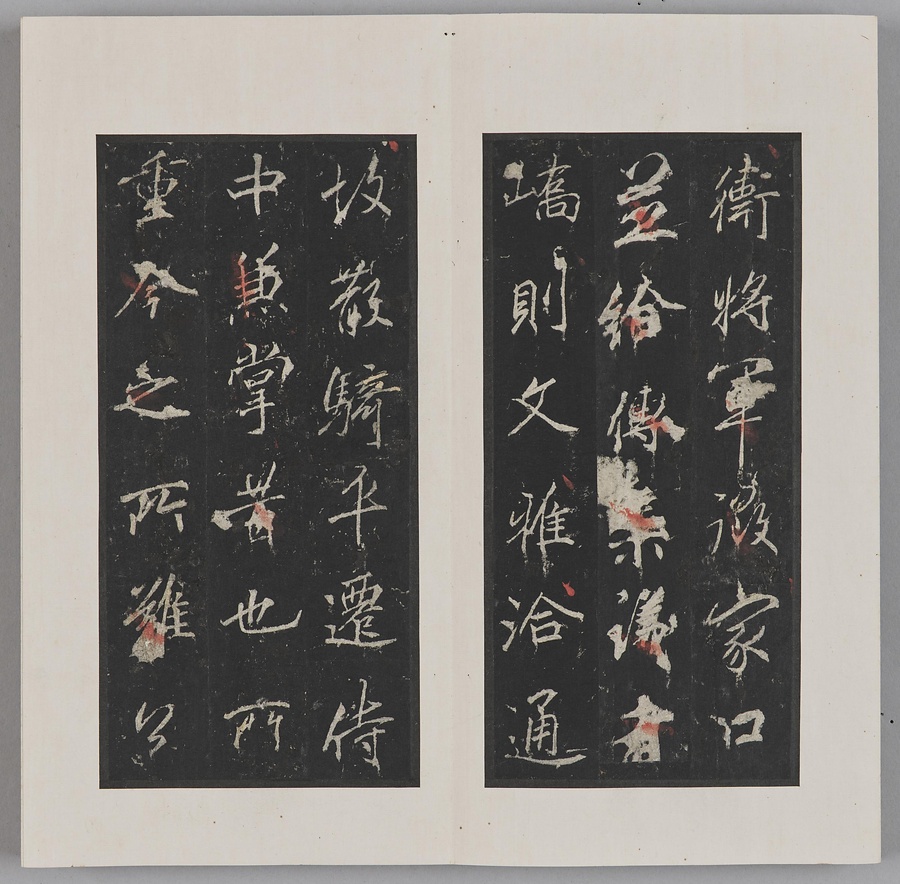 衛將軍徵家口
並給傳集議者
嶠則文雅洽通
故散騎平遷侍
中兼掌昔也所
重今之所難公